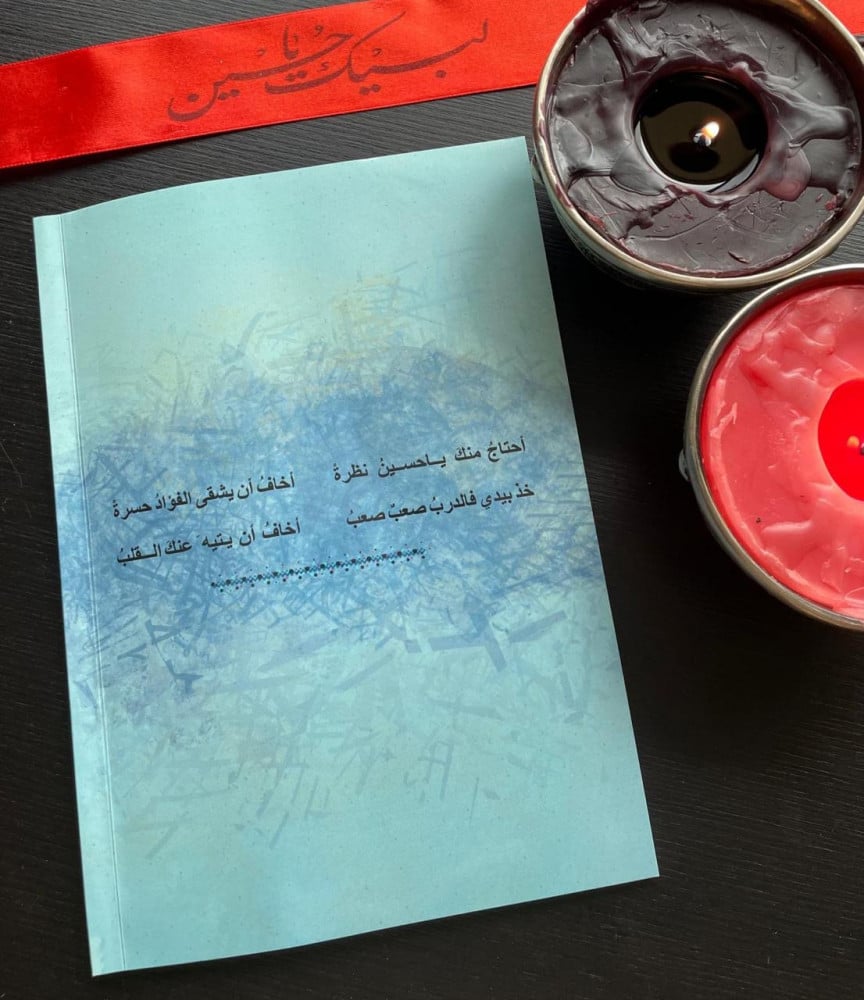 لبيك يا حسين
أحتاجُ منكَ ياحسينُ نظرةْ أخافُ أن يشقى الفؤادُ حسرةْ
خذ بيدي فالدربُ صعبٌ صعبُ أخافُ أنْ يتيهَ عنكَ القلبُ